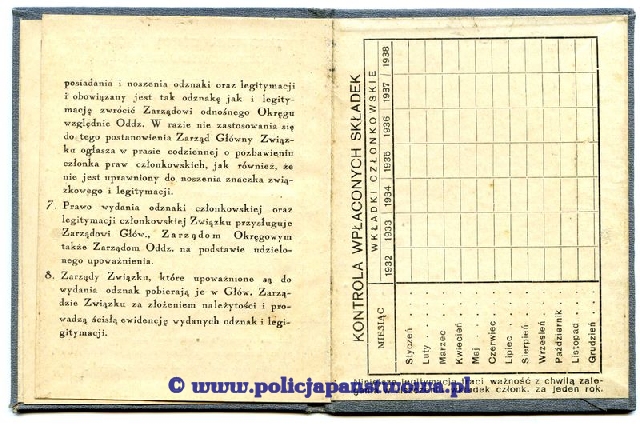 posiadania i noszenia odznaki oraz legitymacji
i obowiązany jest tak odznakę jak i legity-
mację zwrócić Zarządowi odnośnego Okręgu
względnie Oddz. W razie nie zastosowania się
do tego postanowienia Zarząd Główny Związ-
ku ogłasza w prasie codziennej o pozbawieniu
członka praw członkowskich, jak również, że
nie jest uprawniony do noszenia znaczka zwią-
zkowego i legitymacji.
7. Prawo wydania odznaki członkowskiej oraz
legitymacji członkowskiej Związku przysługuje
Zarządowi Głów., Zarządom Okręgowym
także Zarządom Oddz. na podstawie udzielo-
nego upoważnienia.
8. Zarządy Związku, które upoważnione są do
wydania odznak pobierają je w Głów. Zarzą-
dzie Związku za złożeniem należytości i pro-
wadzą ścisłą ewidencję wydanych odznak i legi-
gitymacji.
KONTROLA WPŁACONYCH SKŁADEK
WKŁADKI CZŁONKOWSKIE
MIESIĄC 1932 1933 1934 1935 1936 1937 1938
Styczeń . .
Luty . . .
Marzec . .
Kwiecień .
Maj . . .
Czerwiec .
Lipiec . .
Sierpień .
Wrzesień .
Październik
Listopad .
Grudzień .
Niniejsza legitymacja traci ważność z chwilą zale-
członk. za jeden rok.
© www.policjapanstwowa.pl